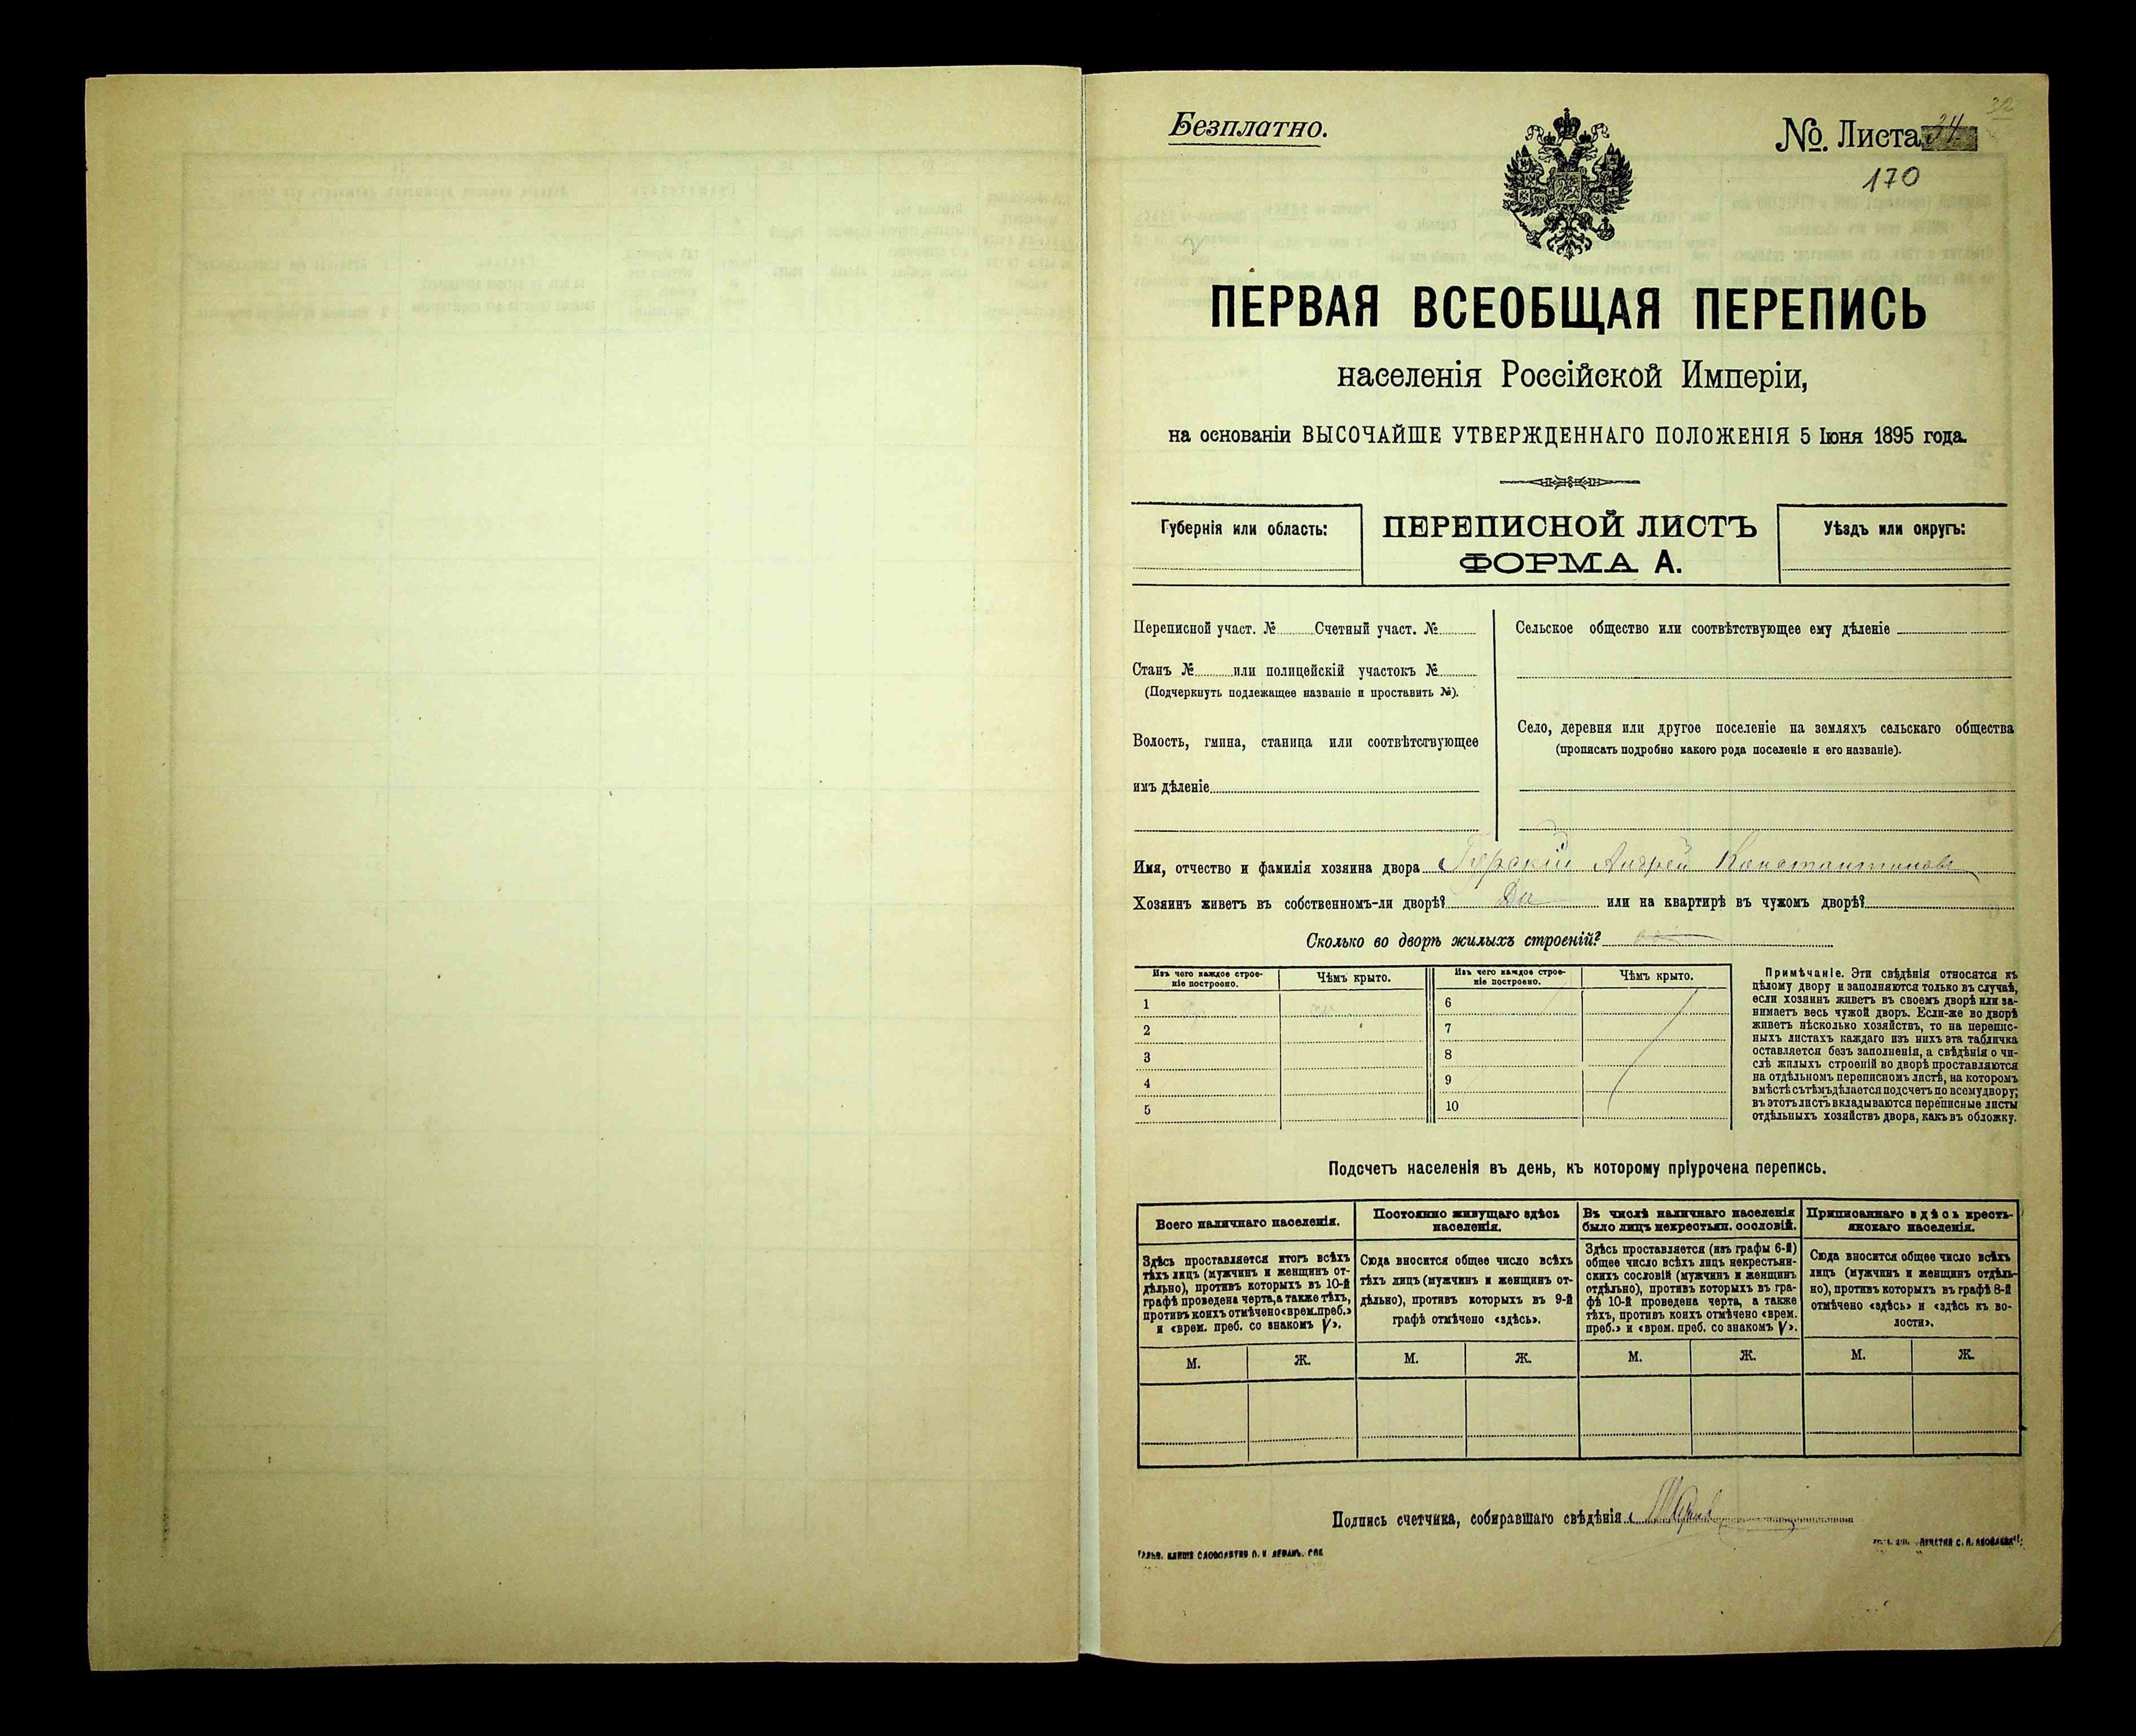 Безплатно.
№. Листа 34
170
ПЕРВАЯ ВСЕОБЩАЯ ПЕРЕПИСЬ
населенія Россійской Имперіи,
на основаніи ВЫСОЧАЙШЕ УТВЕРЖДЕННАГО ПОЛОЖЕНІЯ 5 Іюня 1895 года.
Губернія или область:
ПЕРЕПИСНОЙ ЛИСТЪ
ФОРМА А.
Уѣздъ или округъ:
Переписной участ. № Счетный участ. №
Станъ № или полицейскій участокъ №
(Подчеркнуть подлежащее названіе и проставить №).
Волость, гмина, станица или соотвѣтствующее
имъ дѣленіе
Сельское общество или соотвѣтствующее ему дѣленіе
Село, деревня или другое поселеніе на земляхъ сельскаго общества
(прописать подробно какого рода поселеніе и его названіе).
Имя, отчество и фамилія хозяина двора Гурскій Андрей Константиновъ
Хозяинъ живетъ въ собственномъ-ли дворѣ? Да или на квартирѣ въ чужомъ дворѣ?
Сколько во дворѣ жилыхъ строеній?
Изъ чего каждое строе-
ніе построено.
Чѣмъ крыто.
Изъ чего каждое строе-
ніе построено.
Чѣмъ крыто.
1
2
3
4
5
6
7
8
9
10
Примѣчаніе. Эти свѣдѣнія относятся къ
цѣлому двору и заполняются только въ случаѣ,
если хозяинъ живетъ въ своемъ дворѣ или за-
нимаетъ весь чужой дворъ. Если-же во дворѣ
живетъ нѣсколько хозяйствъ, то на перепис-
ныхъ листахъ каждаго изъ нихъ эта табличка
оставляется безъ заполненія, а свѣдѣнія о чи-
слѣ жилыхъ строеній во дворѣ проставляются
на отдѣльномъ переписномъ листѣ, на которомъ
вмѣстѣ съ тѣмъ дѣлается подсчетъ по всему двору;
въ этотъ листъ вкладываются переписные листы
отдѣльныхъ хозяйствъ двора, какъ въ обложку.
Подсчетъ населенія въ день, къ которому пріурочена перепись.
Всего наличнаго населенія.
Здѣсь проставляется итогъ всѣхъ
тѣхъ лицъ (мужчинъ и женщинъ от-
дѣльно), противъ которыхъ въ 10-й
графѣ проведена черта, а также тѣхъ,
противъ коихъ отмѣчено «врем. преб.»
и «врем. преб. со знакомъ V».
Постоянно живущаго здѣсь
населенія.
Сюда вносится общее число всѣхъ
тѣхъ лицъ (мужчинъ и женщинъ от-
дѣльно), противъ которыхъ въ 9-й
графѣ отмѣчено «здѣсь».
Въ числѣ наличнаго населенія
было лицъ некрестьян. сословій.
Здѣсь проставляется (изъ графы 6-й)
общее число всѣхъ лицъ некрестьян-
скихъ сословій (мужчинъ и женщинъ
отдѣльно), противъ которыхъ въ гра-
фѣ 10-й проведена черта, а также
тѣхъ, противъ коихъ отмѣчено «врем.
преб.» и «врем. преб. со знакомъ V».
Приписаннаго здѣсь кресть-
янскаго населенія.
Сюда вносится общее число всѣхъ
лицъ (мужчинъ и женщинъ отдѣль-
но), противъ которыхъ въ графѣ 8-й
отмѣчено «здѣсь» и «здѣсь къ во-
лости».
М. Ж. М. Ж. М. Ж. М. Ж.
Подпись счетчика, собиравшаго свѣдѣнія